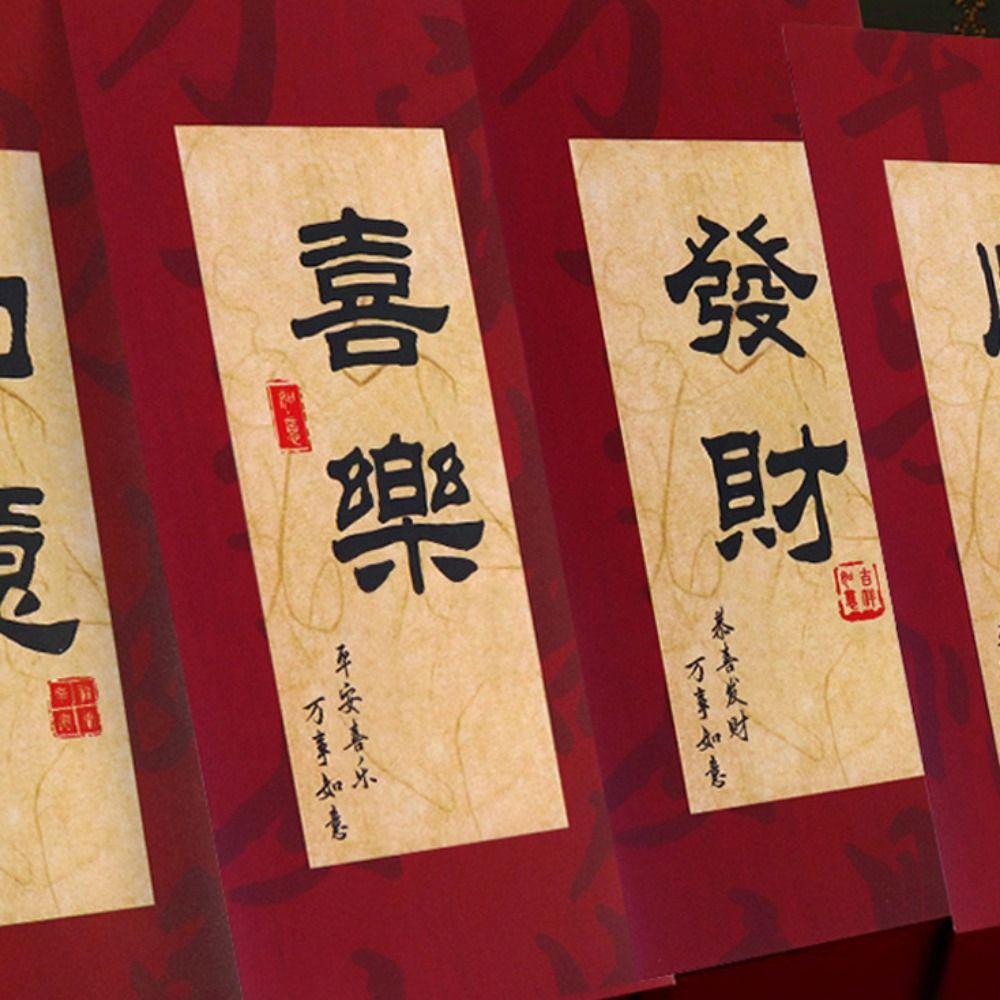 喜樂
如意
平安喜乐
万事如意
發財
吉祥
如意
恭喜发财
万事如意
意